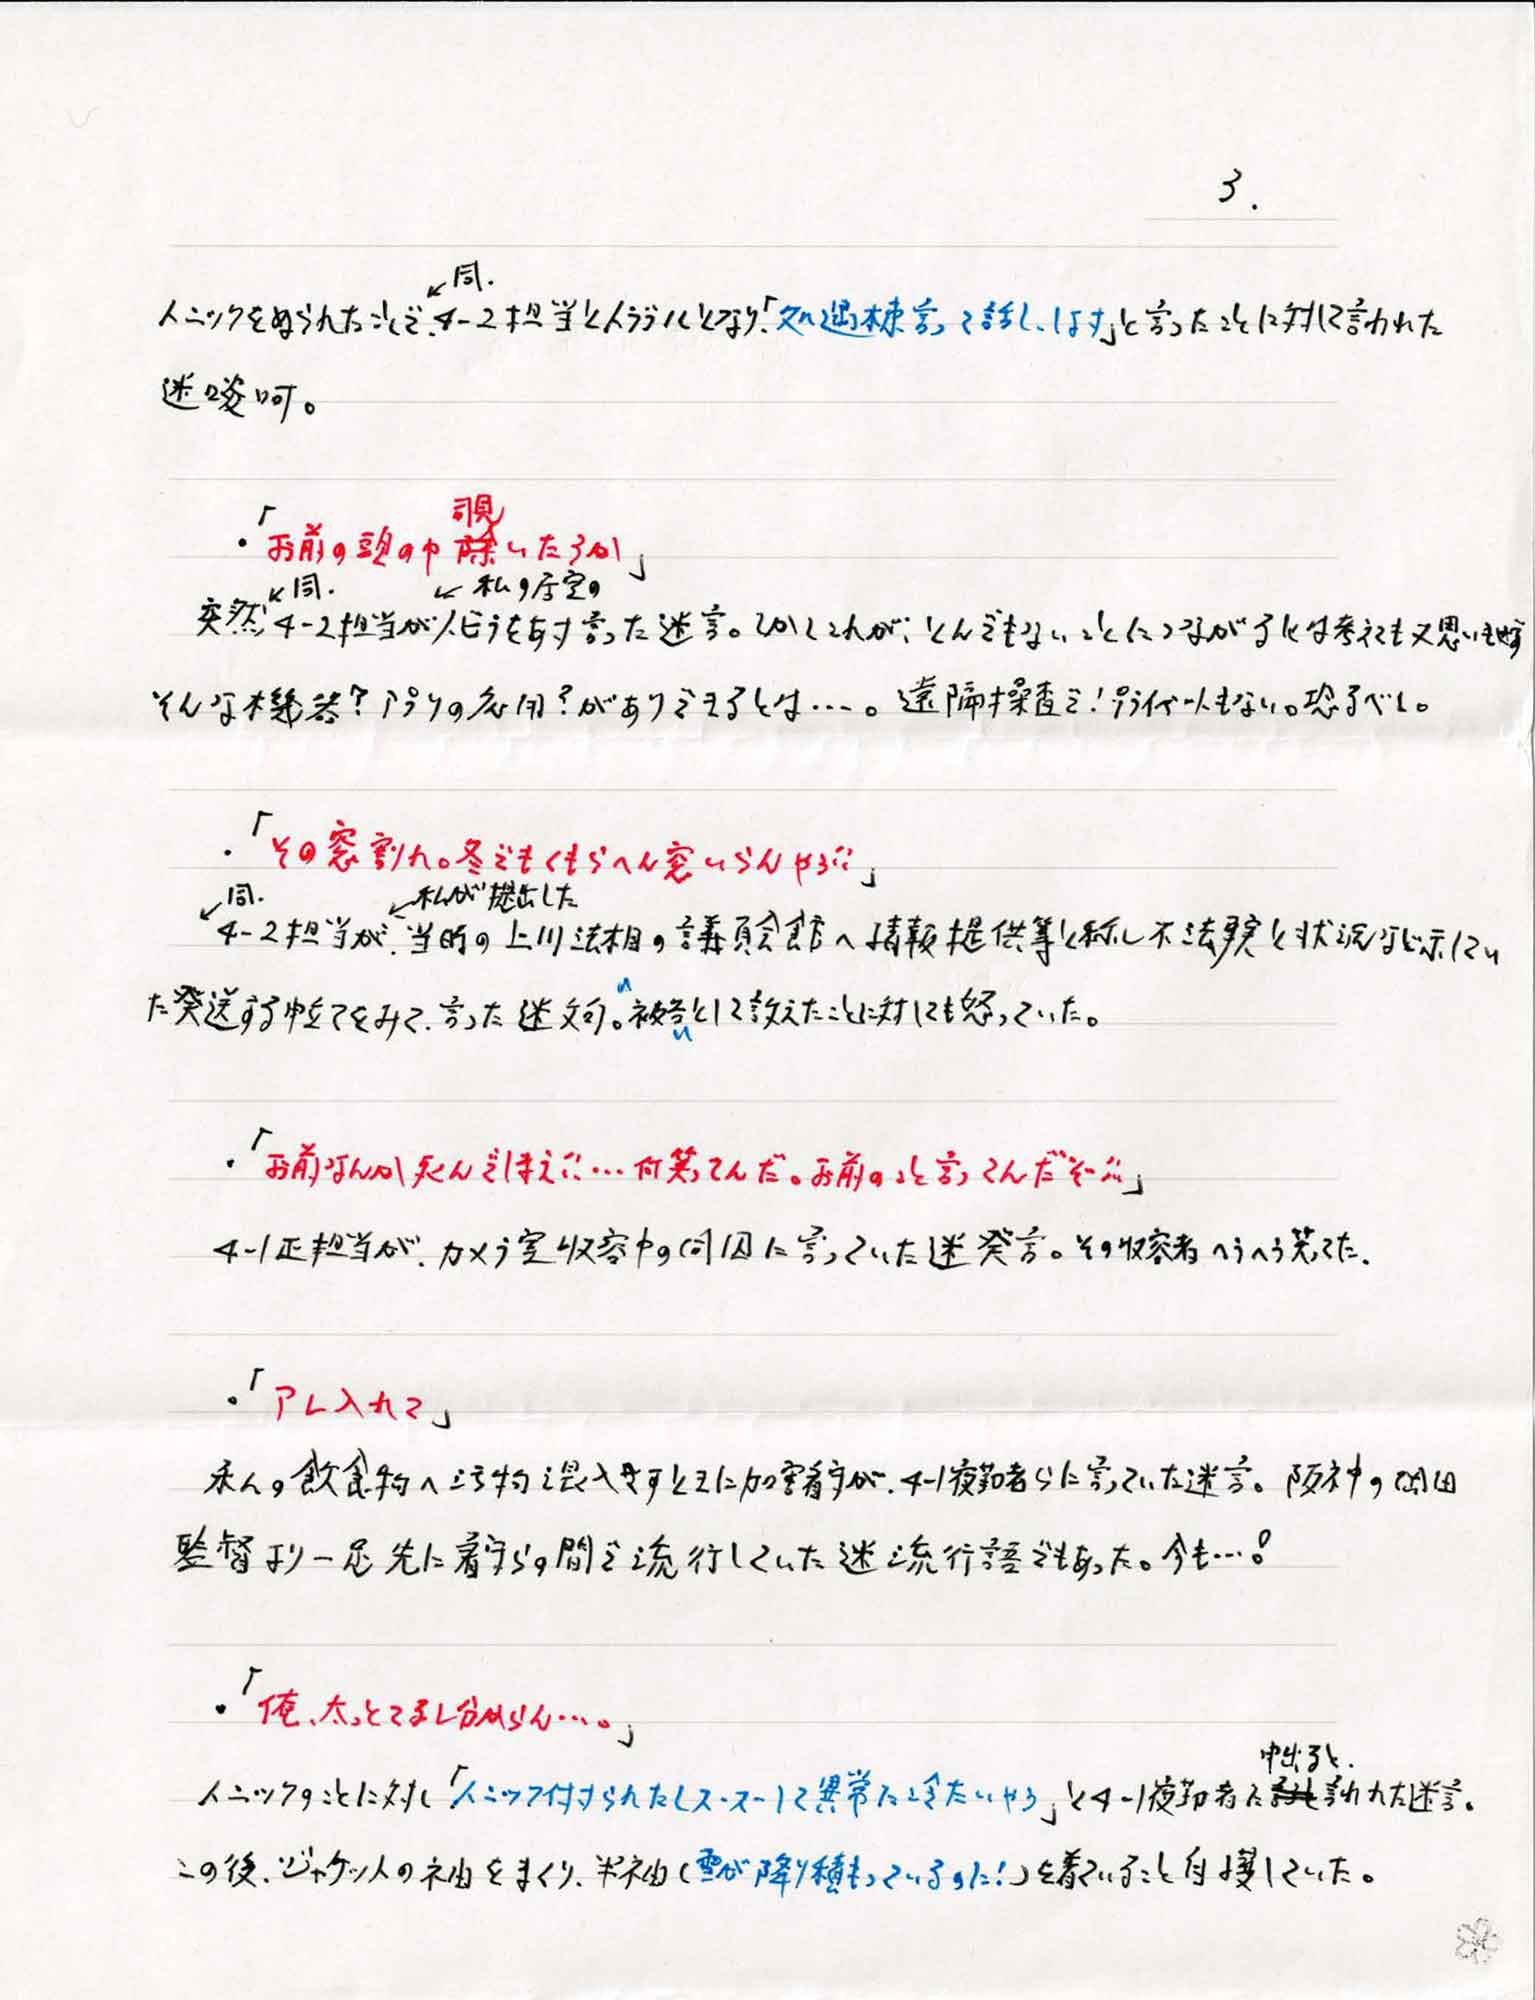 3.
←同.
トニックをぬられたことで、4-2担当とトラブルとなり、「処遇棟言って話しします」と言ったことに対して言われた
迷啖呵。
・「お前の頭の中覗いたろか」
←同. ←私の居室の
突然、4-2担当がトビラをあけ言った迷言。しかしこれが、とんでもないことにつながるとは考えても又思いもせず
そんな機器?アプリの応用?がありできるとは…。遠隔操査で!プライバートもない。恐るべし。
・「その窓割れ。冬でもくもらへん窓いらんやろ!!」
←同. ←私が提出した
4-2担当が、当時の上川法相の議員会館へ情報提供等と称し不法実と状況など示してい
た発送する申立てをみて、言った迷文句。被告として訴えたことに対しても怒っていた。
・「お前なんか死んでしまえ!!…何笑ってんだ。お前のこと言ってんだぞー!!」
4-1正担当が、カメラ室収容中の同囚に言っていた迷発言。その収容者へらへら笑ってた.
・「アレ入れて」
本人の飲食物へ汚物混入さすときに加害看守が、4-1夜勤者らに言っていた迷言。阪神の岡田
監督より一足先に看守らの間で流行していた迷流行語でもあった。今も…!
・「俺、太っとてるし分からん…。」
申出ると.
トニックのことに対し「トニック付けられたしスースーして異常な冷たいやろ」と4-1夜勤者に言われた迷言。
この後、ジャケットの袖をまくり、半袖(雪が降り積もっているのに!)を着ていること自慢していた。